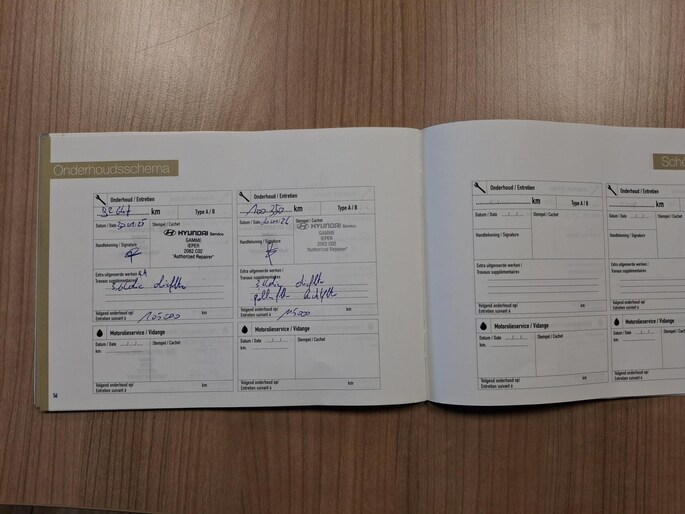 Onderhoudsschema
Onderhoud / Entretien
km
Type A / B
Datum / Date
Stempel / Cachet
HYUNDAI Service
GAMME
IEPER
2062 C02
"Authorized Repairer"
Handtekening / Signature
Extra uitgevoerde werken /
Travaux supplémentaires
Volgend onderhoud op
Entretien suivant à
105000
Motorolieservice / Vidange
Datum / Date / /
Stempel / Cachet
km.
Volgend onderhoud op /
Entretien suivant à
km
14
Onderhoud / Entretien
100250 km
Type A / B
Datum / Date
Stempel / Cachet
HYUNDAI Service
GAMME
IEPER
2062 C02
"Authorized Repairer"
Handtekening / Signature
Extra uitgevoerde werken /
Travaux supplémentaires
Volgend onderhoud op
Entretien suivant à
115000
Motorolieservice / Vidange
Datum / Date / /
Stempel / Cachet
km.
Volgend onderhoud op /
Entretien suivant à
km
Sche
Onderhoud / Entretien
km
Type A / B
Datum / Date / /
Stempel / Cachet
Handtekening / Signature
Extra uitgevoerde werken /
Travaux supplémentaires
Volgend onderhoud op
Entretien suivant à
km
Motorolieservice / Vidange
Datum / Date / /
Stempel / Cachet
km.
Volgend onderhoud op /
Entretien suivant à
km
Onderhoud / Entretien
km
Datum / Date / /
Stempel /
Handtekening / Signature
Extra uitgevoerde werken /
Travaux supplémentaires
Volgend onderhoud op
Entretien suivant à
Motorolieservice /
Datum / Date / /
Stempel /
km.
Volgend onderhoud op /
Entretien suivant à